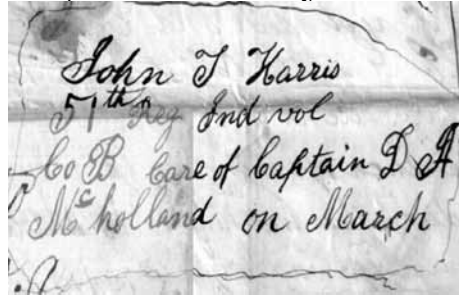 John T Harris
51th Reg Ind vol
Co B Care of Captain D A
Mc holland on March